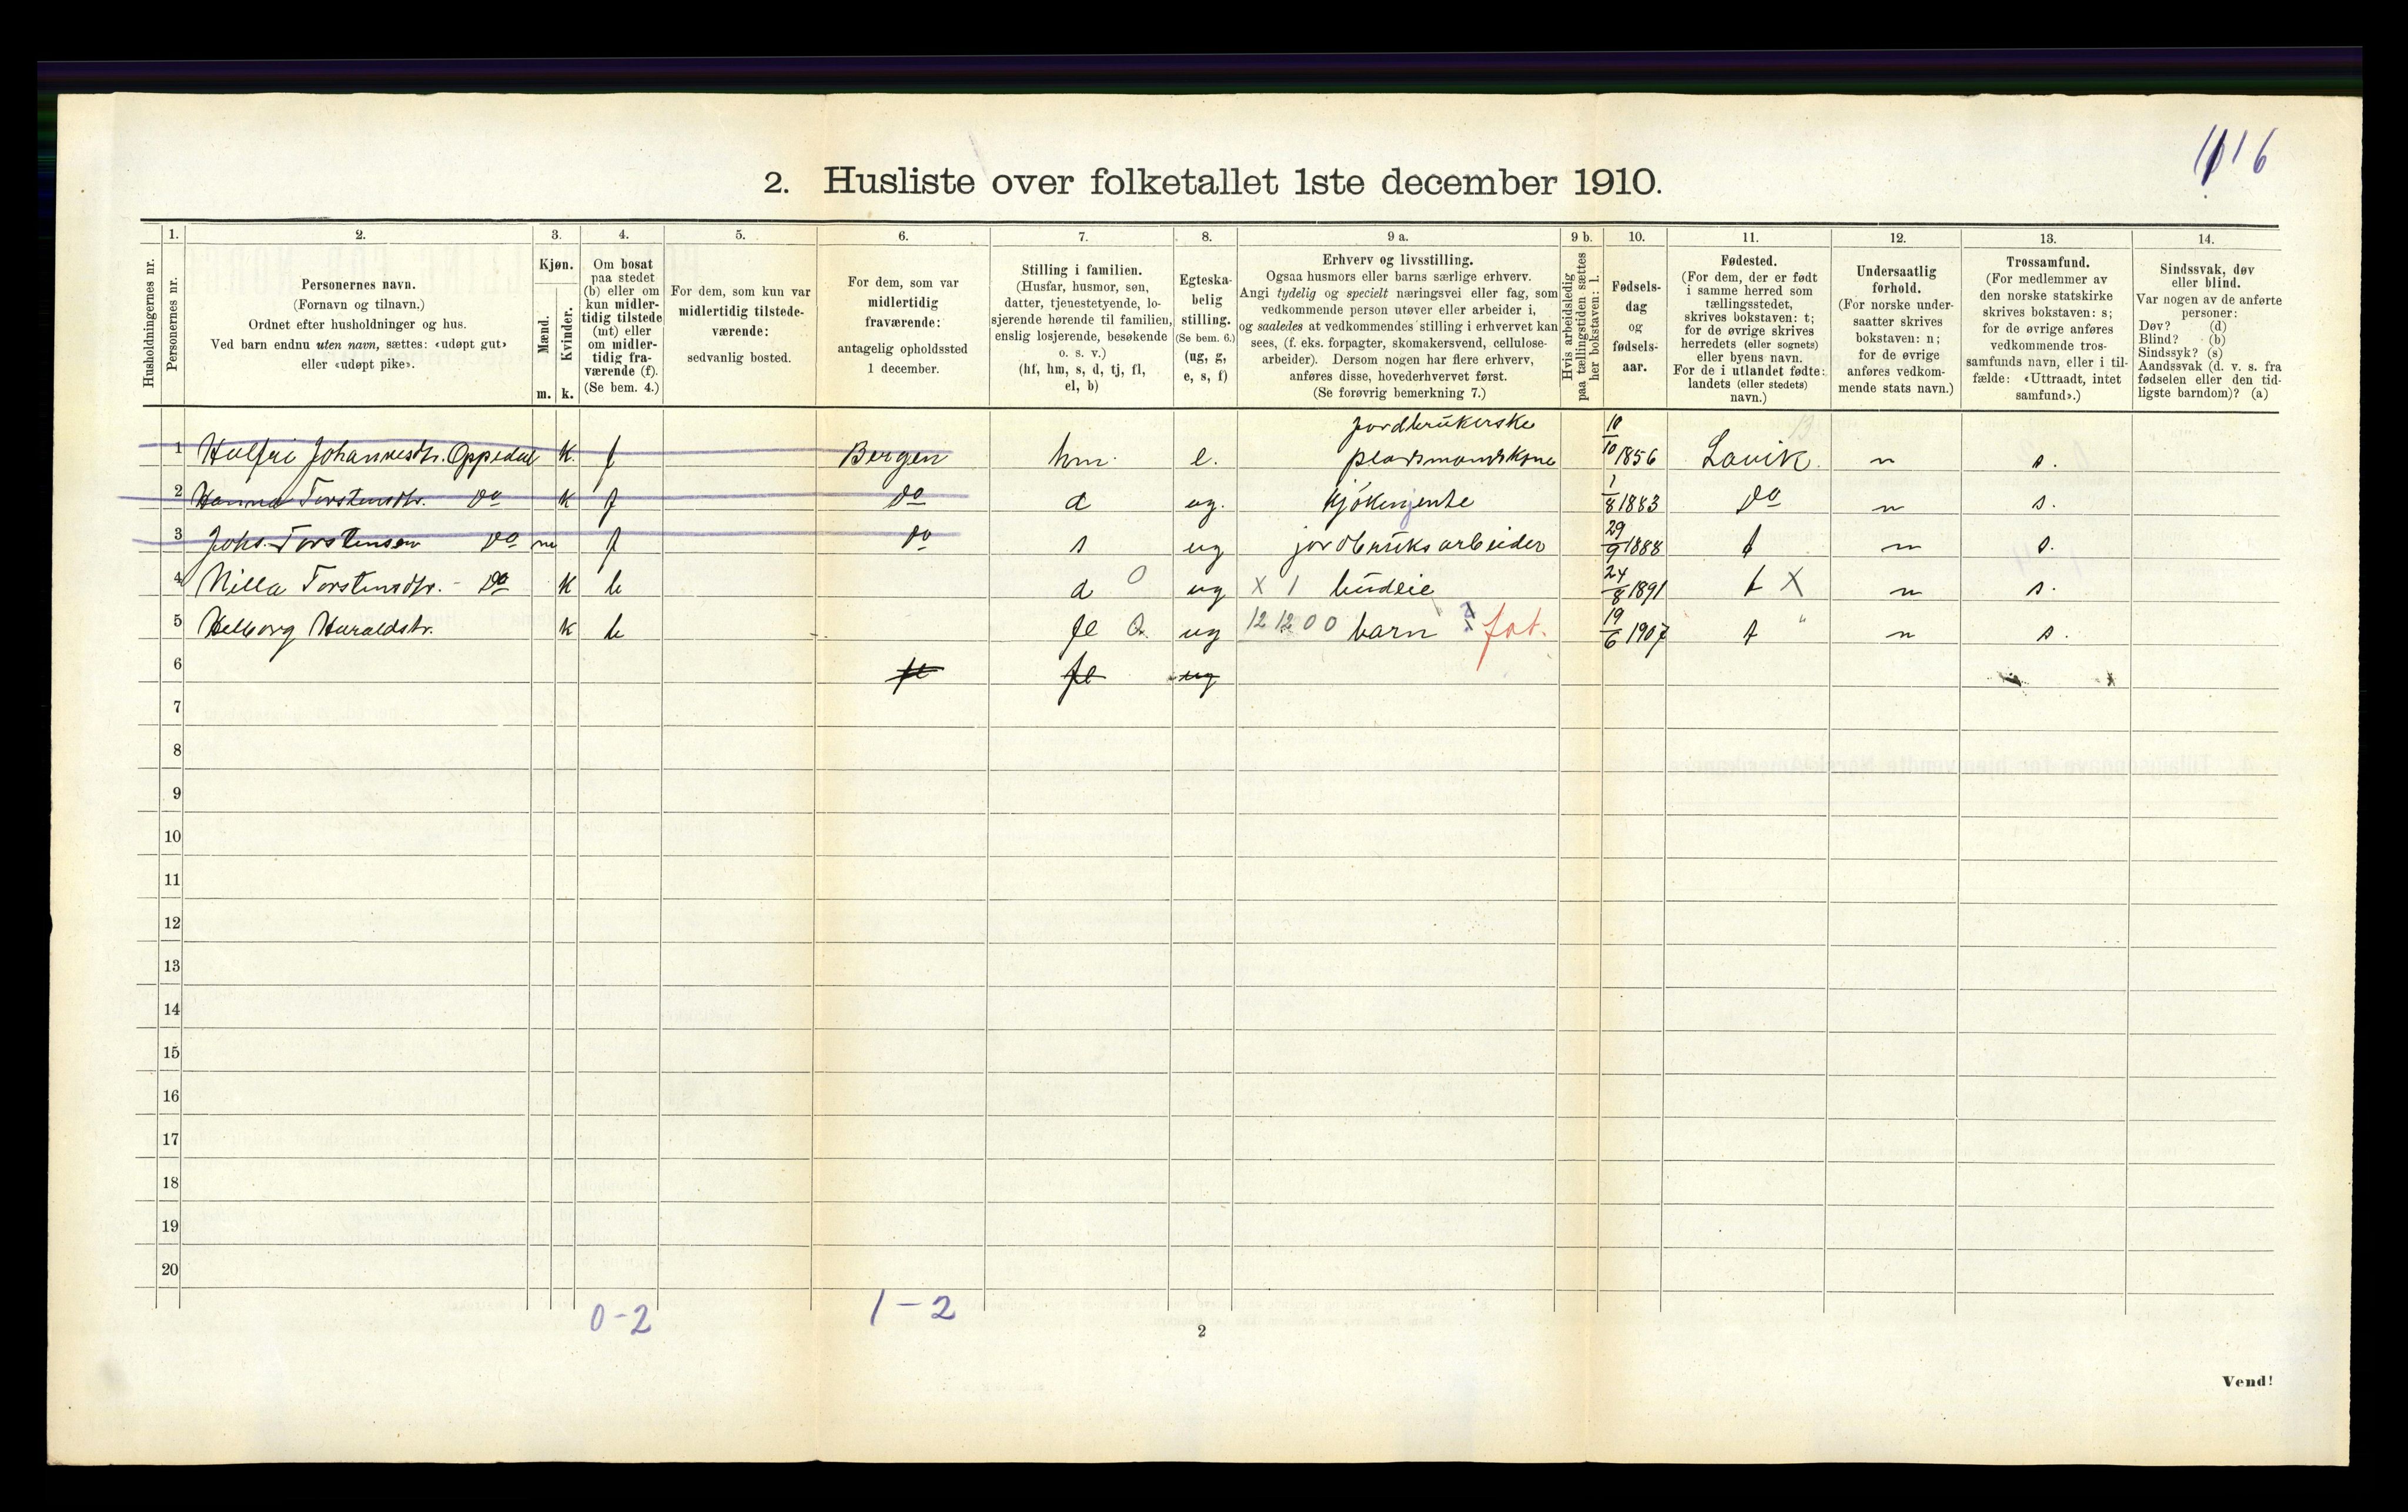 116
2. Husliste over folketallet 1ste december 1910.
1. 2. 3. 4. 5. 6. 7. 8. 9 a. 9 b. 10. 11. 12. 13. 14.
Husholdningernes nr.
Personernes nr.
Personernes navn.
(Fornavn og tilnavn.)
Ordnet efter husholdninger og hus.
Ved barn endnu uten navn, sættes: «udøpt gut»
eller «udøpt pike».
Kjøn.
Mænd.
Kvinder.
m. k.
Om bosat
paa stedet
(b) eller om
kun midler-
tidig tilstede
(mt) eller
om midler-
tidig fra-
værende (f).
(Se bem. 4.)
For dem, som kun var
midlertidig tilstede-
værende:
sedvanlig bosted.
For dem, som var
midlertidig
fraværende:
antagelig opholdssted
1 december.
Stilling i familien.
(Husfar, husmor, søn,
datter, tjenestetyende, lo-
sjerende hørende til familien,
enslig losjerende, besøkende
o. s. v.)
(hf, hm, s, d, tj, fl,
el, b)
Egteska-
belig
stilling.
(Se bem. 6.)
(ug, g,
e, s, f)
Erhverv og livsstilling.
Ogsaa husmors eller barns særlige erhverv.
Angi tydelig og specielt næringsvei eller fag, som
vedkommende person utøver eller arbeider i,
og saaledes at vedkommendes stilling i erhvervet kan
sees, (f. eks. forpagter, skomakersvend, cellulose-
arbeider). Dersom nogen har flere erhverv,
anføres disse, hovederhvervet først.
(Se forøvrig bemerkning 7.)
Hvis arbeidsledig
paa tællingstiden sættes
her bokstaven: l.
Fødsels-
dag
og
fødsels-
aar.
Fødested.
(For dem, der er født
i samme herred som
tællingsstedet,
skrives bokstaven: t;
for de øvrige skrives
herredets (eller sognets)
eller byens navn.
For de i utlandet fødte:
landets (eller stedets)
navn.)
Undersaatlig
forhold.
(For norske under-
saatter skrives
bokstaven: n;
for de øvrige
anføres vedkom-
mende stats navn.)
Trossamfund.
(For medlemmer av
den norske statskirke
skrives bokstaven: s;
for de øvrige anføres
vedkommende tros-
samfunds navn, eller i til-
fælde: «Uttraadt, intet
samfund».)
Sindssvak, døv
eller blind.
Var nogen av de anførte
personer:
Døv? (d)
Blind? (b)
Sindssyk? (s)
Aandssvak (d. v. s. fra
fødselen eller den tid-
ligste barndom)? (a)
jordbrukerske
1 Johannesdtr. Oppedal K. f Bergen hm. e. pladsmandskone 10/10 1856 Lavik. n s.
2 Hanna Torstensdtr. do K f do d ug. kjökenjente 1/8 1883 do n s.
3 Johs. Torstensen do m f do s ug jordbruksarbeider 29/9 1888 t n s.
4 Nilla Torstensdtr. - do K b d 0 ug X 1 budeie 24/8 1891 t X n s.
5 Helborg Haraldstr. K b fl ug 12 12 0 0 barn fat. 19/6 1907 t " n s.
6 fl fl ug
7
8
9
10
11
12
13
14
15
16
17
18
19
20
0-2 1-2
2
Vend!